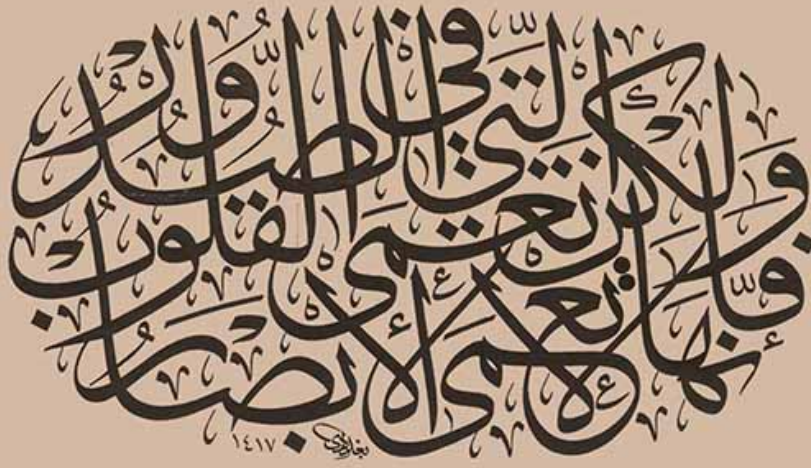 فَإِنَّهَا لَا تَعْمَى الْأَبْصَارُ
وَلَٰكِن تَعْمَى الْقُلُوبُ
الَّتِي فِي الصُّدُورِ
بغدادي ١٤١٧